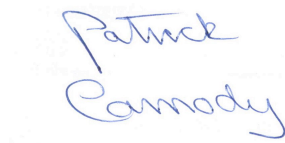 Patrick
Carmody